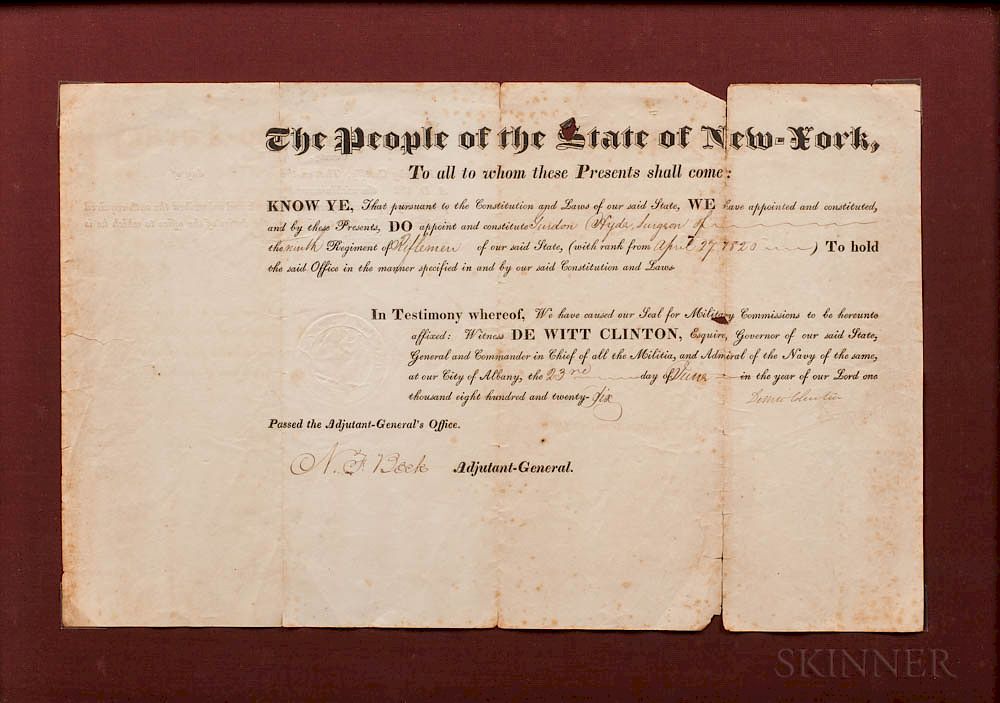 The People of the State of New-York,
To all to whom these Presents shall come:
KNOW YE, That pursuant to the Constitution and Laws of our said State, WE have appointed and constituted,
and by these Presents, DO appoint and constitute Gurdon Hyde, Surgeon of
the ninth Regiment of Riflemen of our said State, (with rank from April 27 1826 ) To hold
the said Office in the manner specified in and by our said Constitution and Laws.
In Testimony whereof, We have caused our Seal for Military Commissions to be hereunto
affixed: Witness DE WITT CLINTON, Esquire, Governor of our said State,
General and Commander in Chief of all the Militia, and Admiral of the Navy of the same,
at our City of Albany, the 23rd day of June in the year of our Lord one
thousand eight hundred and twenty-six
Dewitt Clinton
Passed the Adjutant-General's Office.
N. F. Beck Adjutant-General.
SKINNER